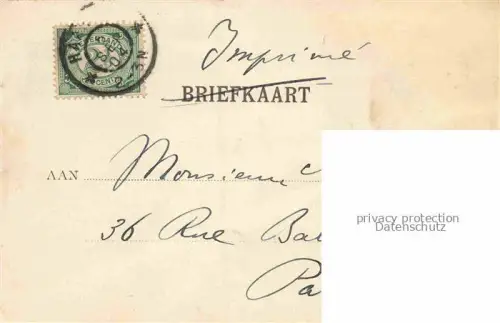 Imprimé
BRIEFKAART
AAN Monsieur
36 Rue Bal
Pa
privacy protection
Datenschutz